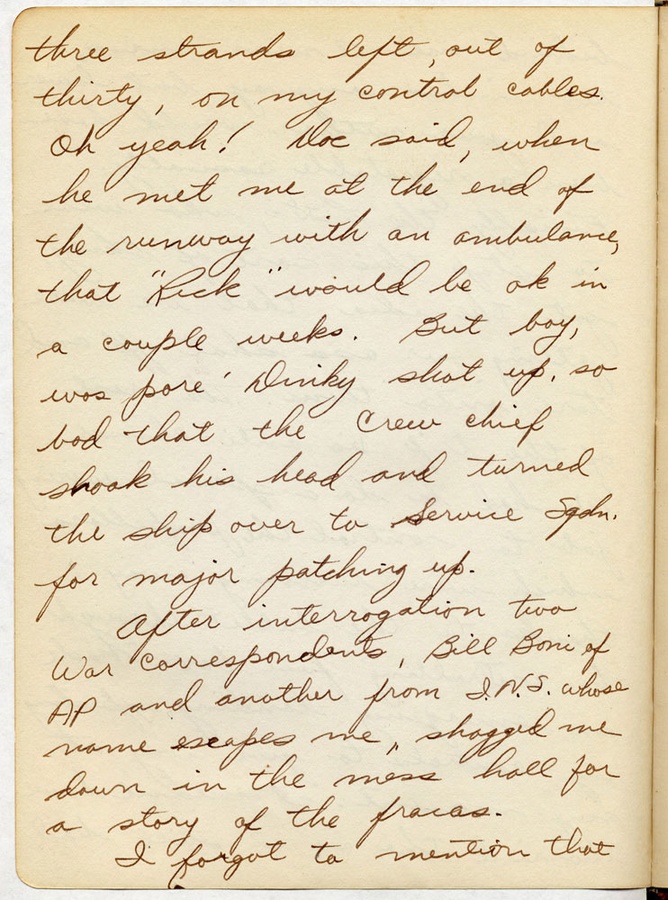 three strands left, out of
thirty, on my control cables.
Oh yeah! Doc said, when
he met me at the end of
the runway with an ambulance,
that "Rick" would be ok in
a couple weeks. But boy,
was pore' Dinky shot up, so
bad that the Crew chief
shook his head and turned
the ship over to Service Sqdn.
for major patching up.
After interrogation two
War Correspondents, Bill Boni of
AP and another from I.N.S. whose
name escapes me, shagged me
down in the mess hall for
a story of the fracas.
I forgot to mention that